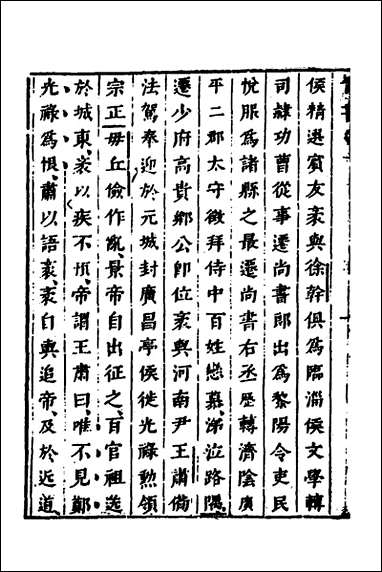 侯精選賓友袤與徐幹俱爲臨淄侯文學轉
司隷功曹從事遷尚書郎出爲黎陽令吏民
悅服爲諸縣之最遷尚書右丞歷轉濟陰廣
平二郡太守徵拜侍中百姓戀慕、涕泣路隅、
遷少府高貴鄉公卽位袤與河南尹王肅備
法駕奉迎於元城封廣昌亭侯徙光祿勲領
宗正毋丘儉作亂、景帝自出征之、百官祖送
於城東、袤以疾不、帝謂王肅曰、唯不見鄭
光祿爲恨、肅以語袤、袤自輿追帝、及於近道、